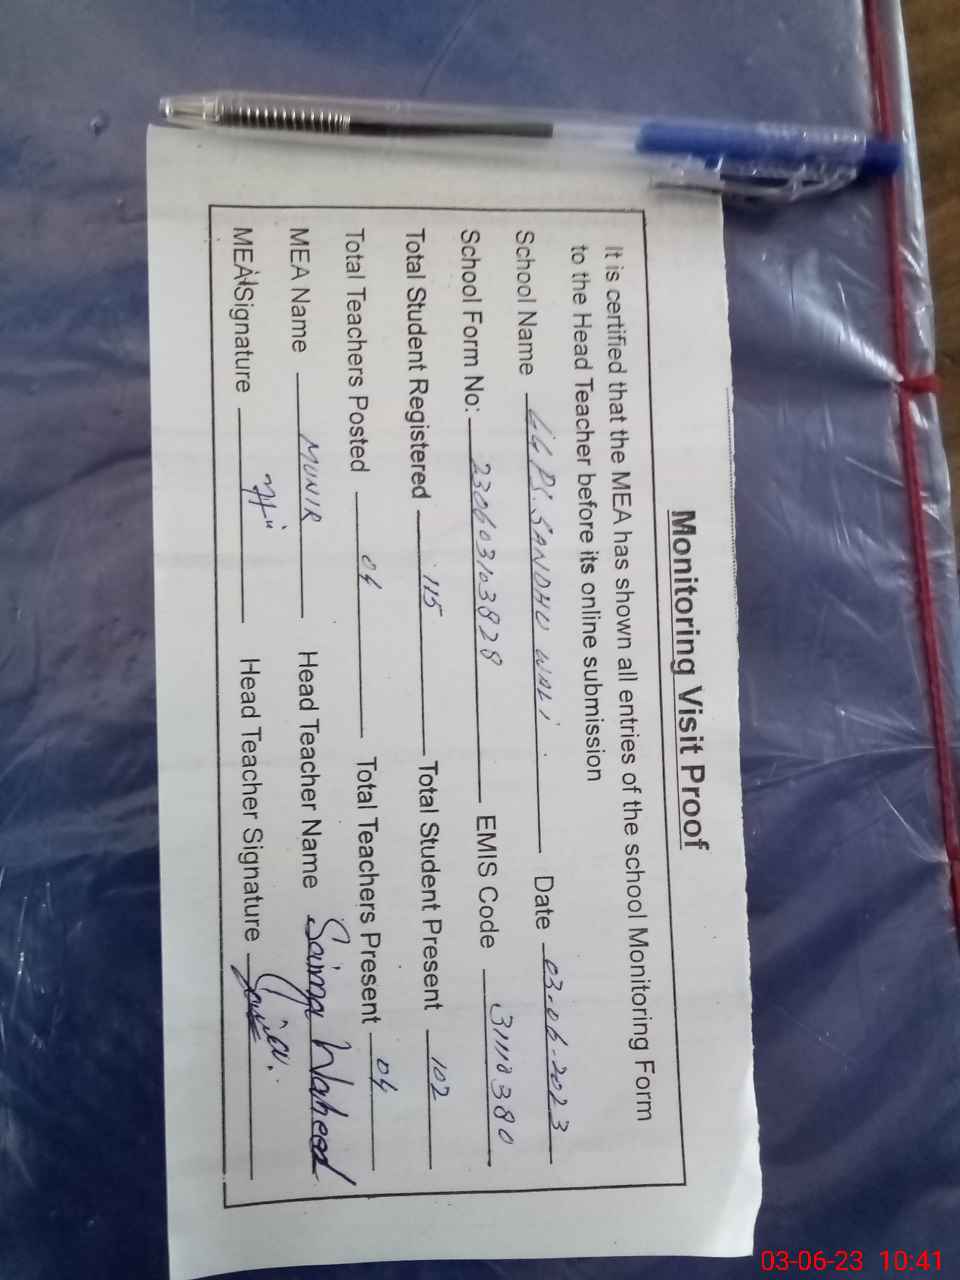 Monitoring Visit Proof
It is certified that the MEA has shown all entries of the school Monitoring Form
to the Head Teacher before its online submission
School Name GGPS. SANDHU WALI. Date 03-06-2023
School Form No: 230603103828 EMIS Code
Total Student Registered 115 Total Student Present 102
Total Teachers Posted 04 Total Teachers Present 04
MEA Name MUNIR Head Teacher Name Saima Waheed
MEA Signature Head Teacher Signature
03-06-23 10:41